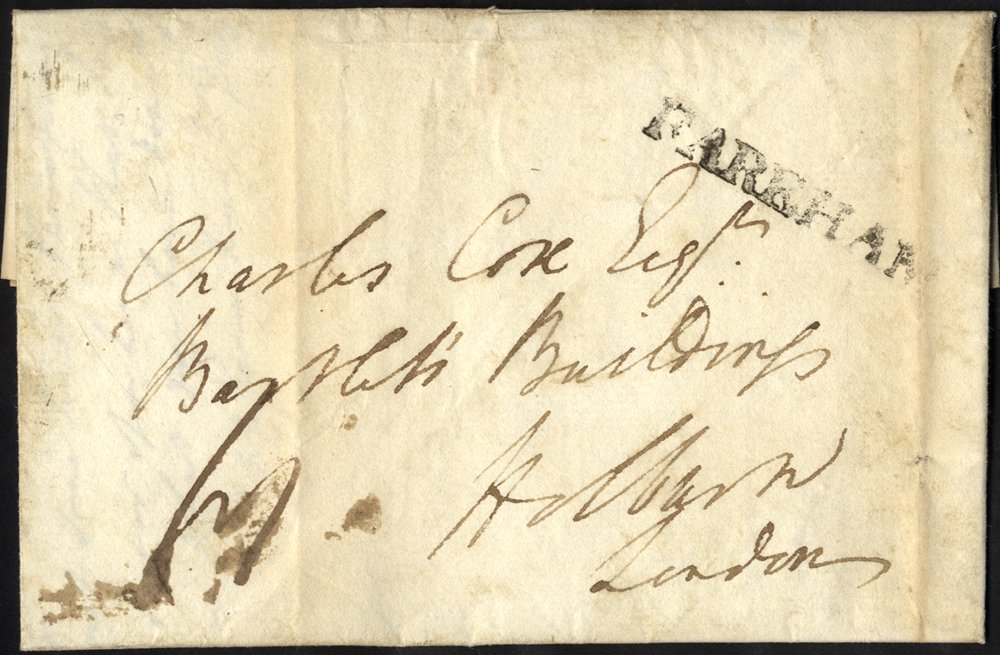 FAREHAM
Charles Cox Esqr.
Bartlett's Buildings
Holborn
London